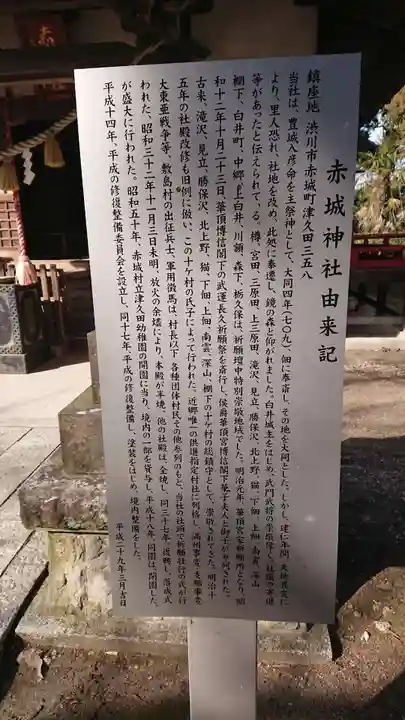 赤城神社由来記
鎮座地 渋川市赤城町津久田三五八
当社は、豊城入彦命を主祭神として、大同四年(七〇九)佃に奉斎し、その地を大同とした。しかし、建仁年間、天地異変に
より、里人恐れ、社地を改め、此処に奉遷し、鏡の森と仰がれました。白井城主をはじめ、武門武将の崇敬篤く、社領の寄進
等があったと伝えられている。樽、宮田、三原田、上三原田、滝沢、見立、勝保沢、北上野、猫、下佃、上佃、南雲、深山
棚下、白井町、中郷、上白井、川額、森下、栃久保は、祈願壇中特別崇敬地域でした。明治元年、華頂宮家祈願所となり、昭
和十二年十月二十三日、華頂博信閣下の武運長久祈願祭を斎行し、侯爵華頂宮博信閣下華子夫人と御子が参列された。
古来、滝沢、見立、勝保沢、北上野、猫、下佃、上佃、南雲、深山、棚下の十ヶ村の総鎮守として、崇敬されてきた。明治十
五年の社殿改修も旧例に倣い、この十ヶ村の氏子によって行われた。近郷唯一の供進指定村社に列格し、満州事変、支那事変
大東亜戦争等、敷島村の出征兵士、軍用徴馬は、村長以下各種団体村民その他参列のもと、当社の社頭で祈願壮行の式が行
われた。昭和三十二年十一月三日未明、放火の余燼により、本殿が半焼、他の社殿は、全焼し、同三十七年、復興し、落成式
が盛大に行われた。昭和五十年、赤城村立津久田幼稚園の開園に当り、境内の一部を貸与し、平成十八年、同園は、閉園した。
平成十四年、平成の修復整備委員会を設立し、同十七年、平成の修復整備し、塗装をはじめ、境内整備をした。
平成二十九年三月吉日